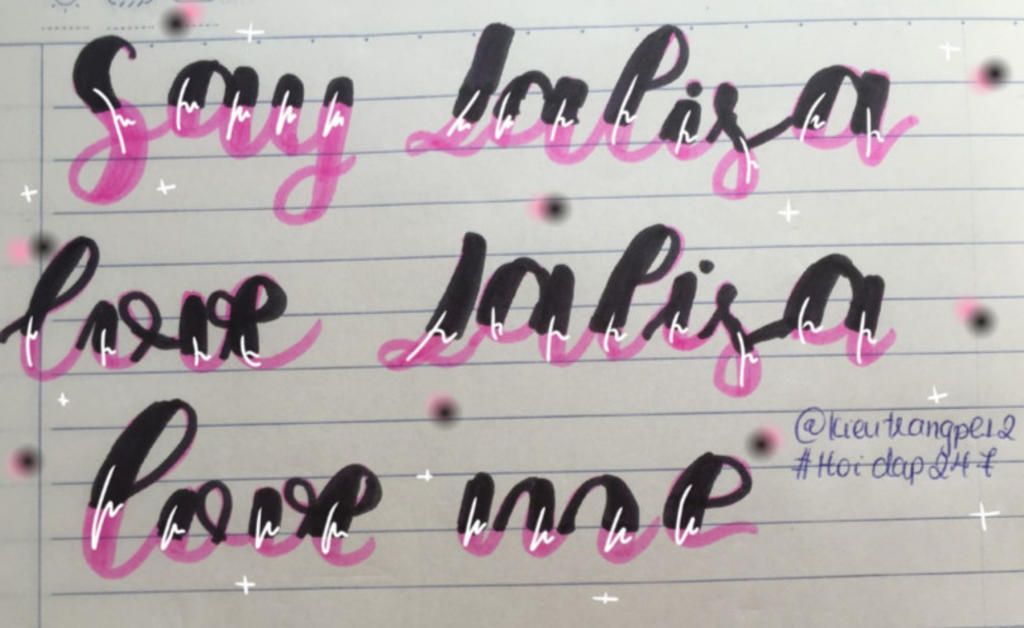 Say Lalisa
love Lalisa
love me
@kieutrangpe12
#Hoidap247